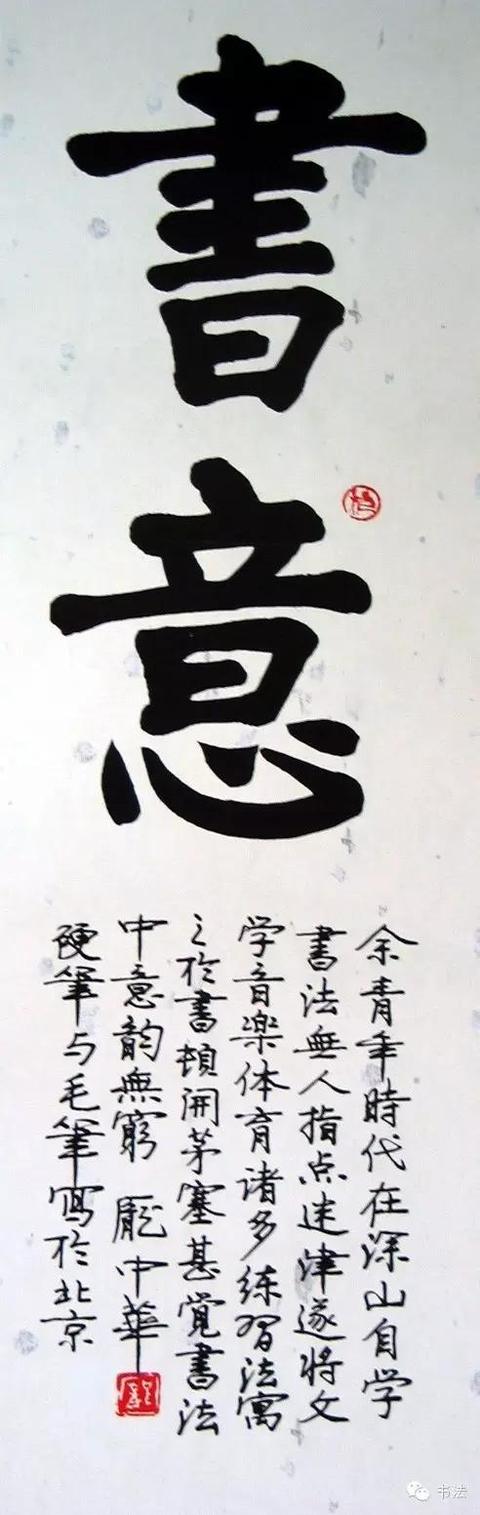 書意
余青年時代在深山自学
書法無人指点迷津遂将文
学音楽体育诸多练習法寓
之於書頓開茅塞甚覚書法
中意韵無窮 龐中華
硬筆与毛筆寫於北京
书法